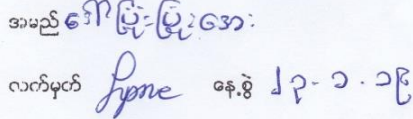 အမည် ဒေါ်ပြုံးပြုံးအေး
လက်မှတ် နေ့စွဲ ၂၃-၁-၁၉